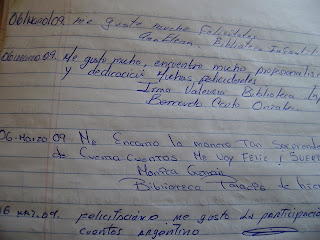 06 Marzo 09 me gusto mucho Felicidades
Biblioteca Infantil
06 marzo 09. Me gustó mucho, encuentro mucho profesionalis
y dedicación Muchas felicidades
Irma Valencia Biblioteca
Bernardo Couto
06-Marzo 09. Me Encanto la manera Tan Sorprende
de Cuenta Cuentos. Me Voy Feliz, y SUPER
Monica
Biblioteca
06 MAR. 09. felicitaciones me gusto la participación
cuentos argentino